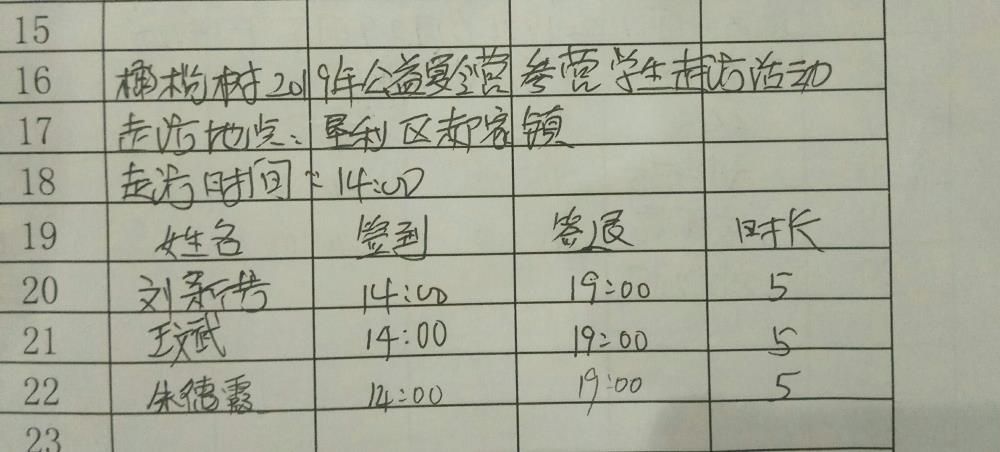 15
16 橄榄树2019年公益夏令营参营学生走访活动
17 走访地点:垦利区郝家镇
18 走访时间:14:00
19 姓名 签到 签退 时长
20 刘新 14:00 19:00 5
21 王文武 14:00 19:00 5
22 朱德霞 14:00 19:00 5
23